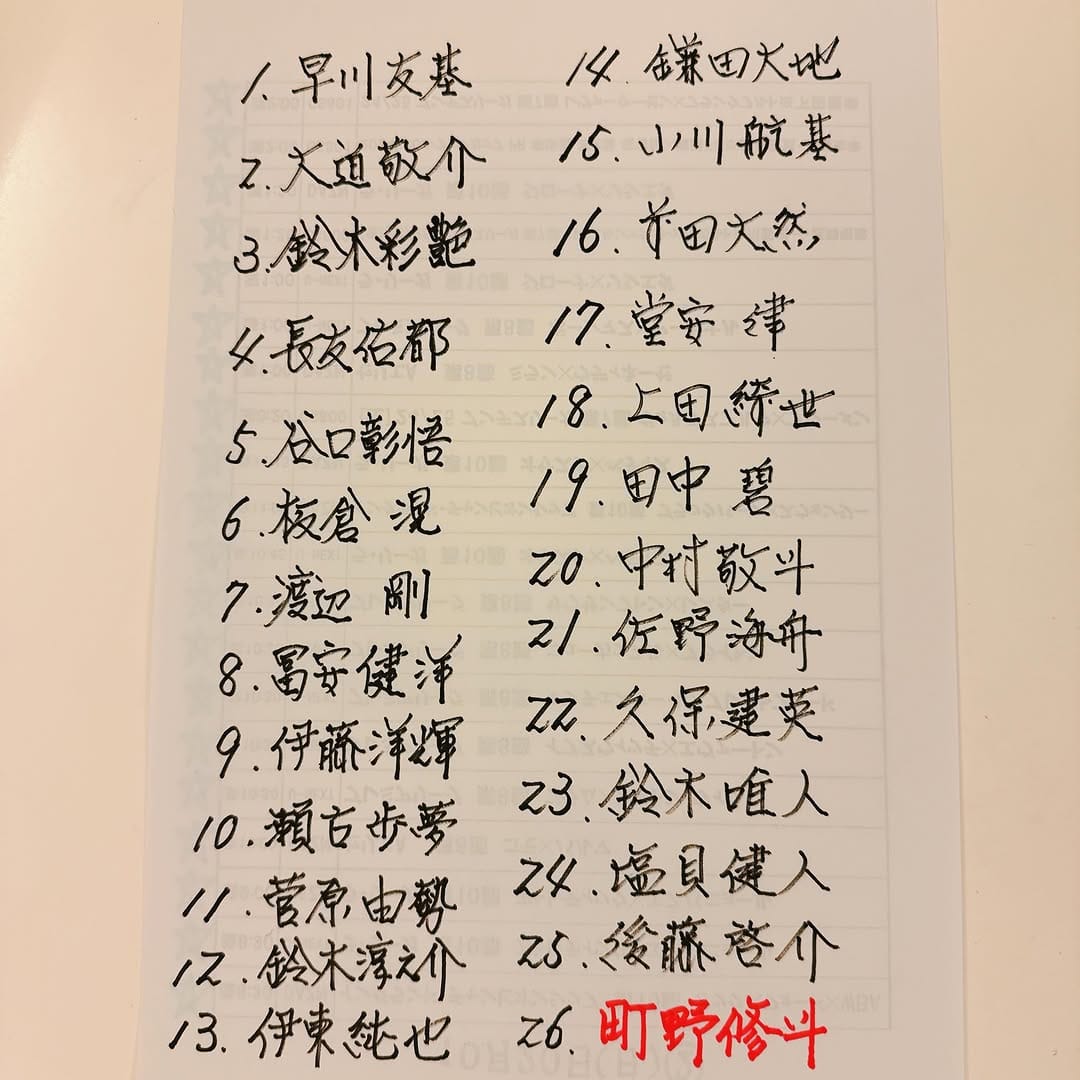 1. 早川友基
2. 大迫敬介
3. 鈴木彩艶
4. 長友佑都
5. 谷口彰悟
6. 板倉 滉
7. 渡辺 剛
8. 冨安健洋
9. 伊藤洋輝
10. 瀬古歩夢
11. 菅原由勢
12. 鈴木淳之介
13. 伊東純也
14. 鎌田大地
15. 小川航基
16. 前田大然
17. 堂安 律
18. 上田綺世
19. 田中 碧
20. 中村敬斗
21. 佐野海舟
22. 久保建英
23. 鈴木唯人
24. 塩貝健人
25. 後藤啓介
26. 町野修斗